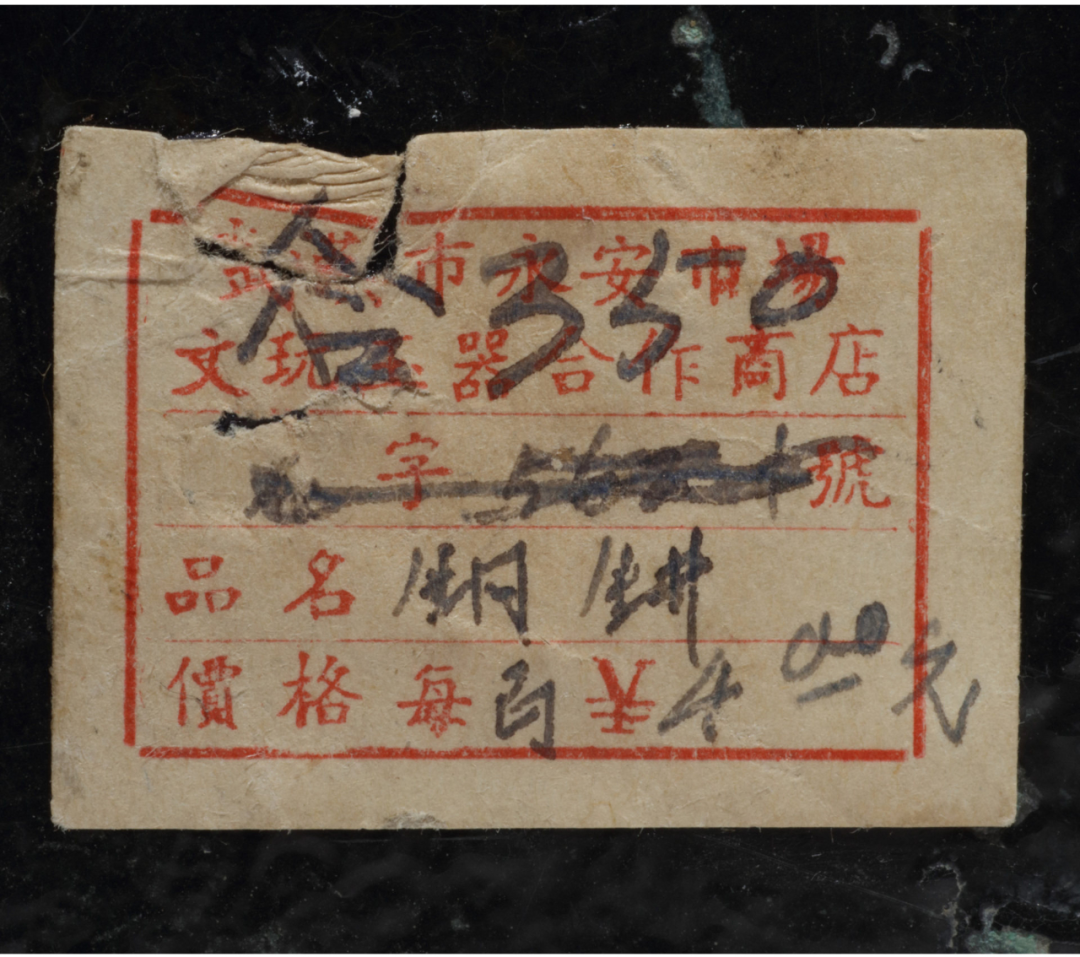 武漢市永安市場
文玩玉器合作商店
合 330
字 號
品名 銅鉼
價格每 4.00元